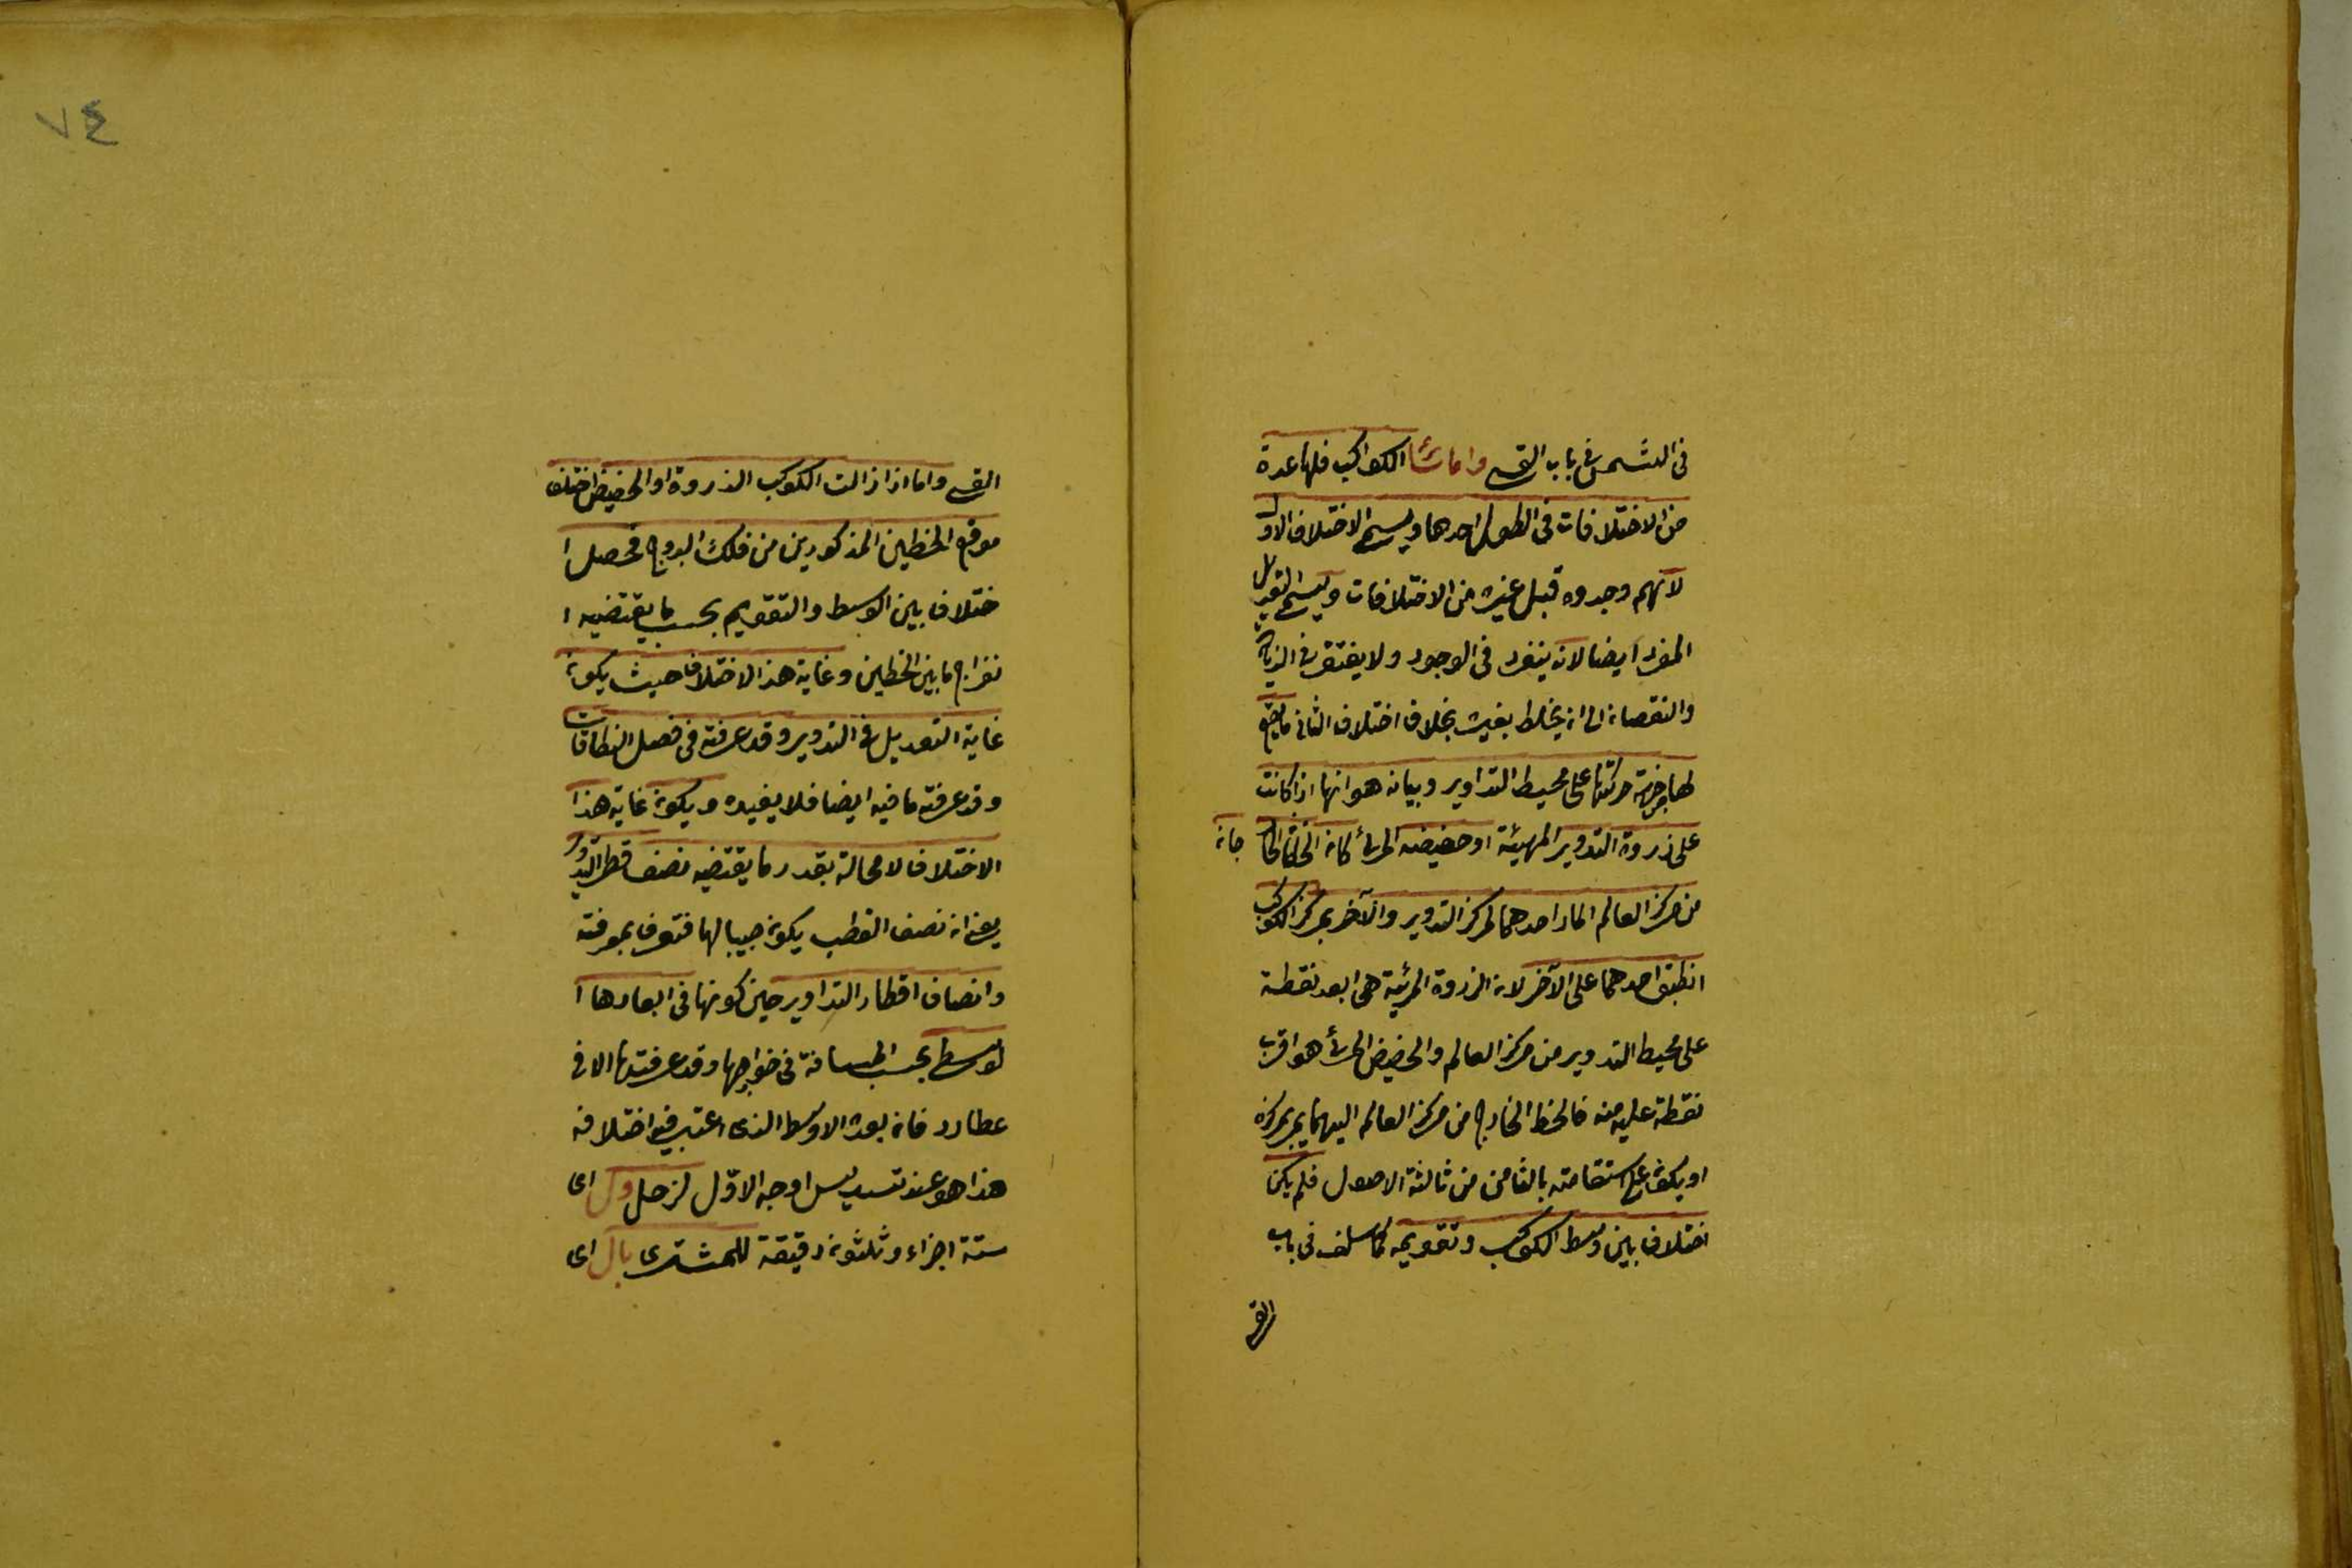 فى الشمس فى باب القمر واما سائر الكواكب فلها عدة
من الاختلافات فى الطول احدها ويسمى الاختلاف الاول
لانهم وجدوه قبل غيره من الاختلافات ويسمى التعديل
المفرد ايضا لانه ينفرد فى الوجود ولا يفتقر فى الزيادة
والنقصان الى ان يخلط بغيره بخلاف اختلاف الثانى ما يقع
لها من جهة حركتها على محيط التداوير وبيانه هو انها اذا كانت
على ذروة التدوير المرئية او حضيضه المرئى كان الخطان الخارجان
من مركز العالم المار احدهما لمركز التدوير والآخر بمركز الكوكب
انطبق احدهما على الآخر لان الذروة المرئية هى ابعد نقطة
على محيط التدوير من مركز العالم والحضيض المرئى هو اقرب
نقطة عليه منه فالخط الخارج من مركز العالم اليهما يمر بمركزه
او يكون على استقامته بالثامن من ثالثة الاصول فلم يكن
اختلاف بين وسط الكوكب وتقويمه كما سلف فى باب
القمر
٧٤
القمر واما اذا زالت الكوكب الذروة او الحضيض اختلف
موقع الخطين المذكورين من فلك البروج فحصل ا
ختلاف بين الوسط والتقويم بحسب ما يقتضيه ا
نفراج ما بين الخطين وغاية هذا الاختلاف حيث يكون
غاية التعديل فى التدوير وقد عرفته فى فصل النطاقات
وقد عرفته ما فيه ايضا فلا يفيده ويكون غاية هذا
الاختلاف لا محالة بقدر ما يقتضيه نصف قطر التدوير
يعنى ان نصف القطب يكون جيبا لها فتعرف بمعرفته
وانصاف اقطار التداوير حين كونها فى ابعادها ا
لوسطى بحسب المسافة فى خوارجها وقد عرفتها الا فى
عطارد فان بعده الاوسط الذى اعتبر فيه اختلافه
هذا هو عند تسديس اوجه الاول لزحل و ل اى
ستة اجزاء وثلثون دقيقة للمشترى يا ل اى